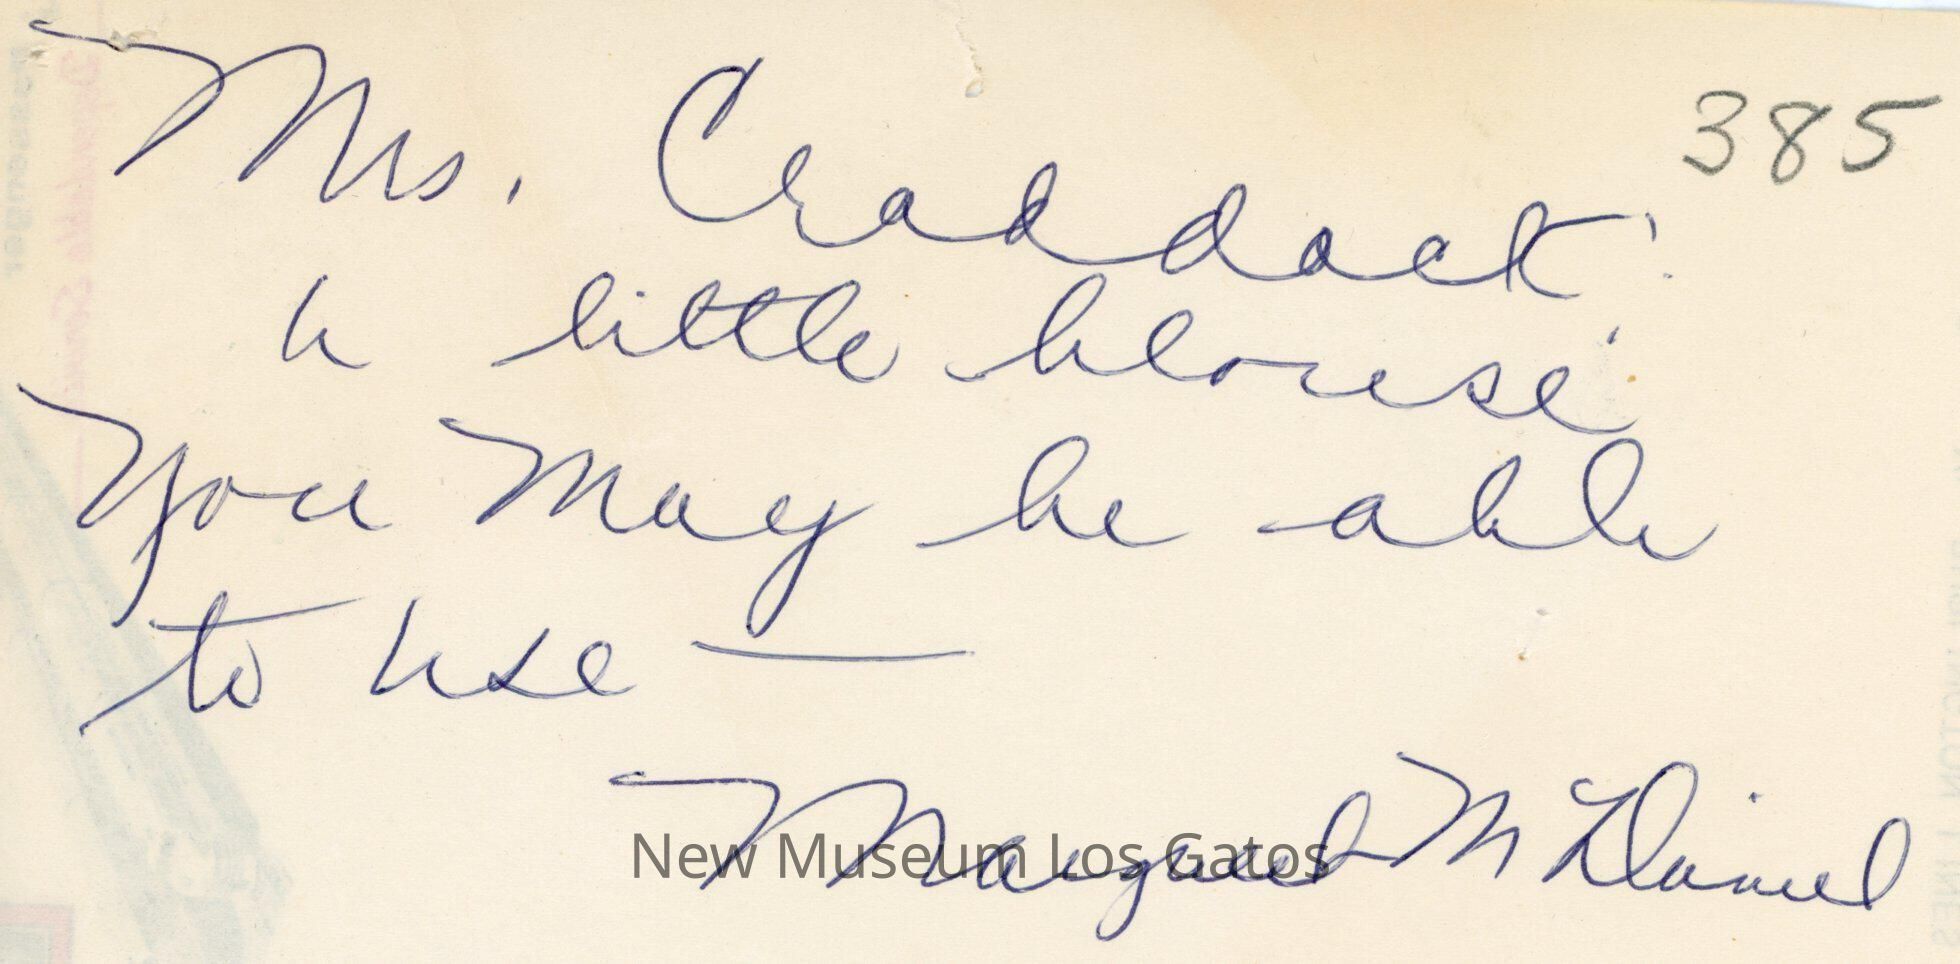 385
Mrs. Craddock:
a little blouse
You May be able
to use —
Margaret McDaniel
New Museum Los Gatos